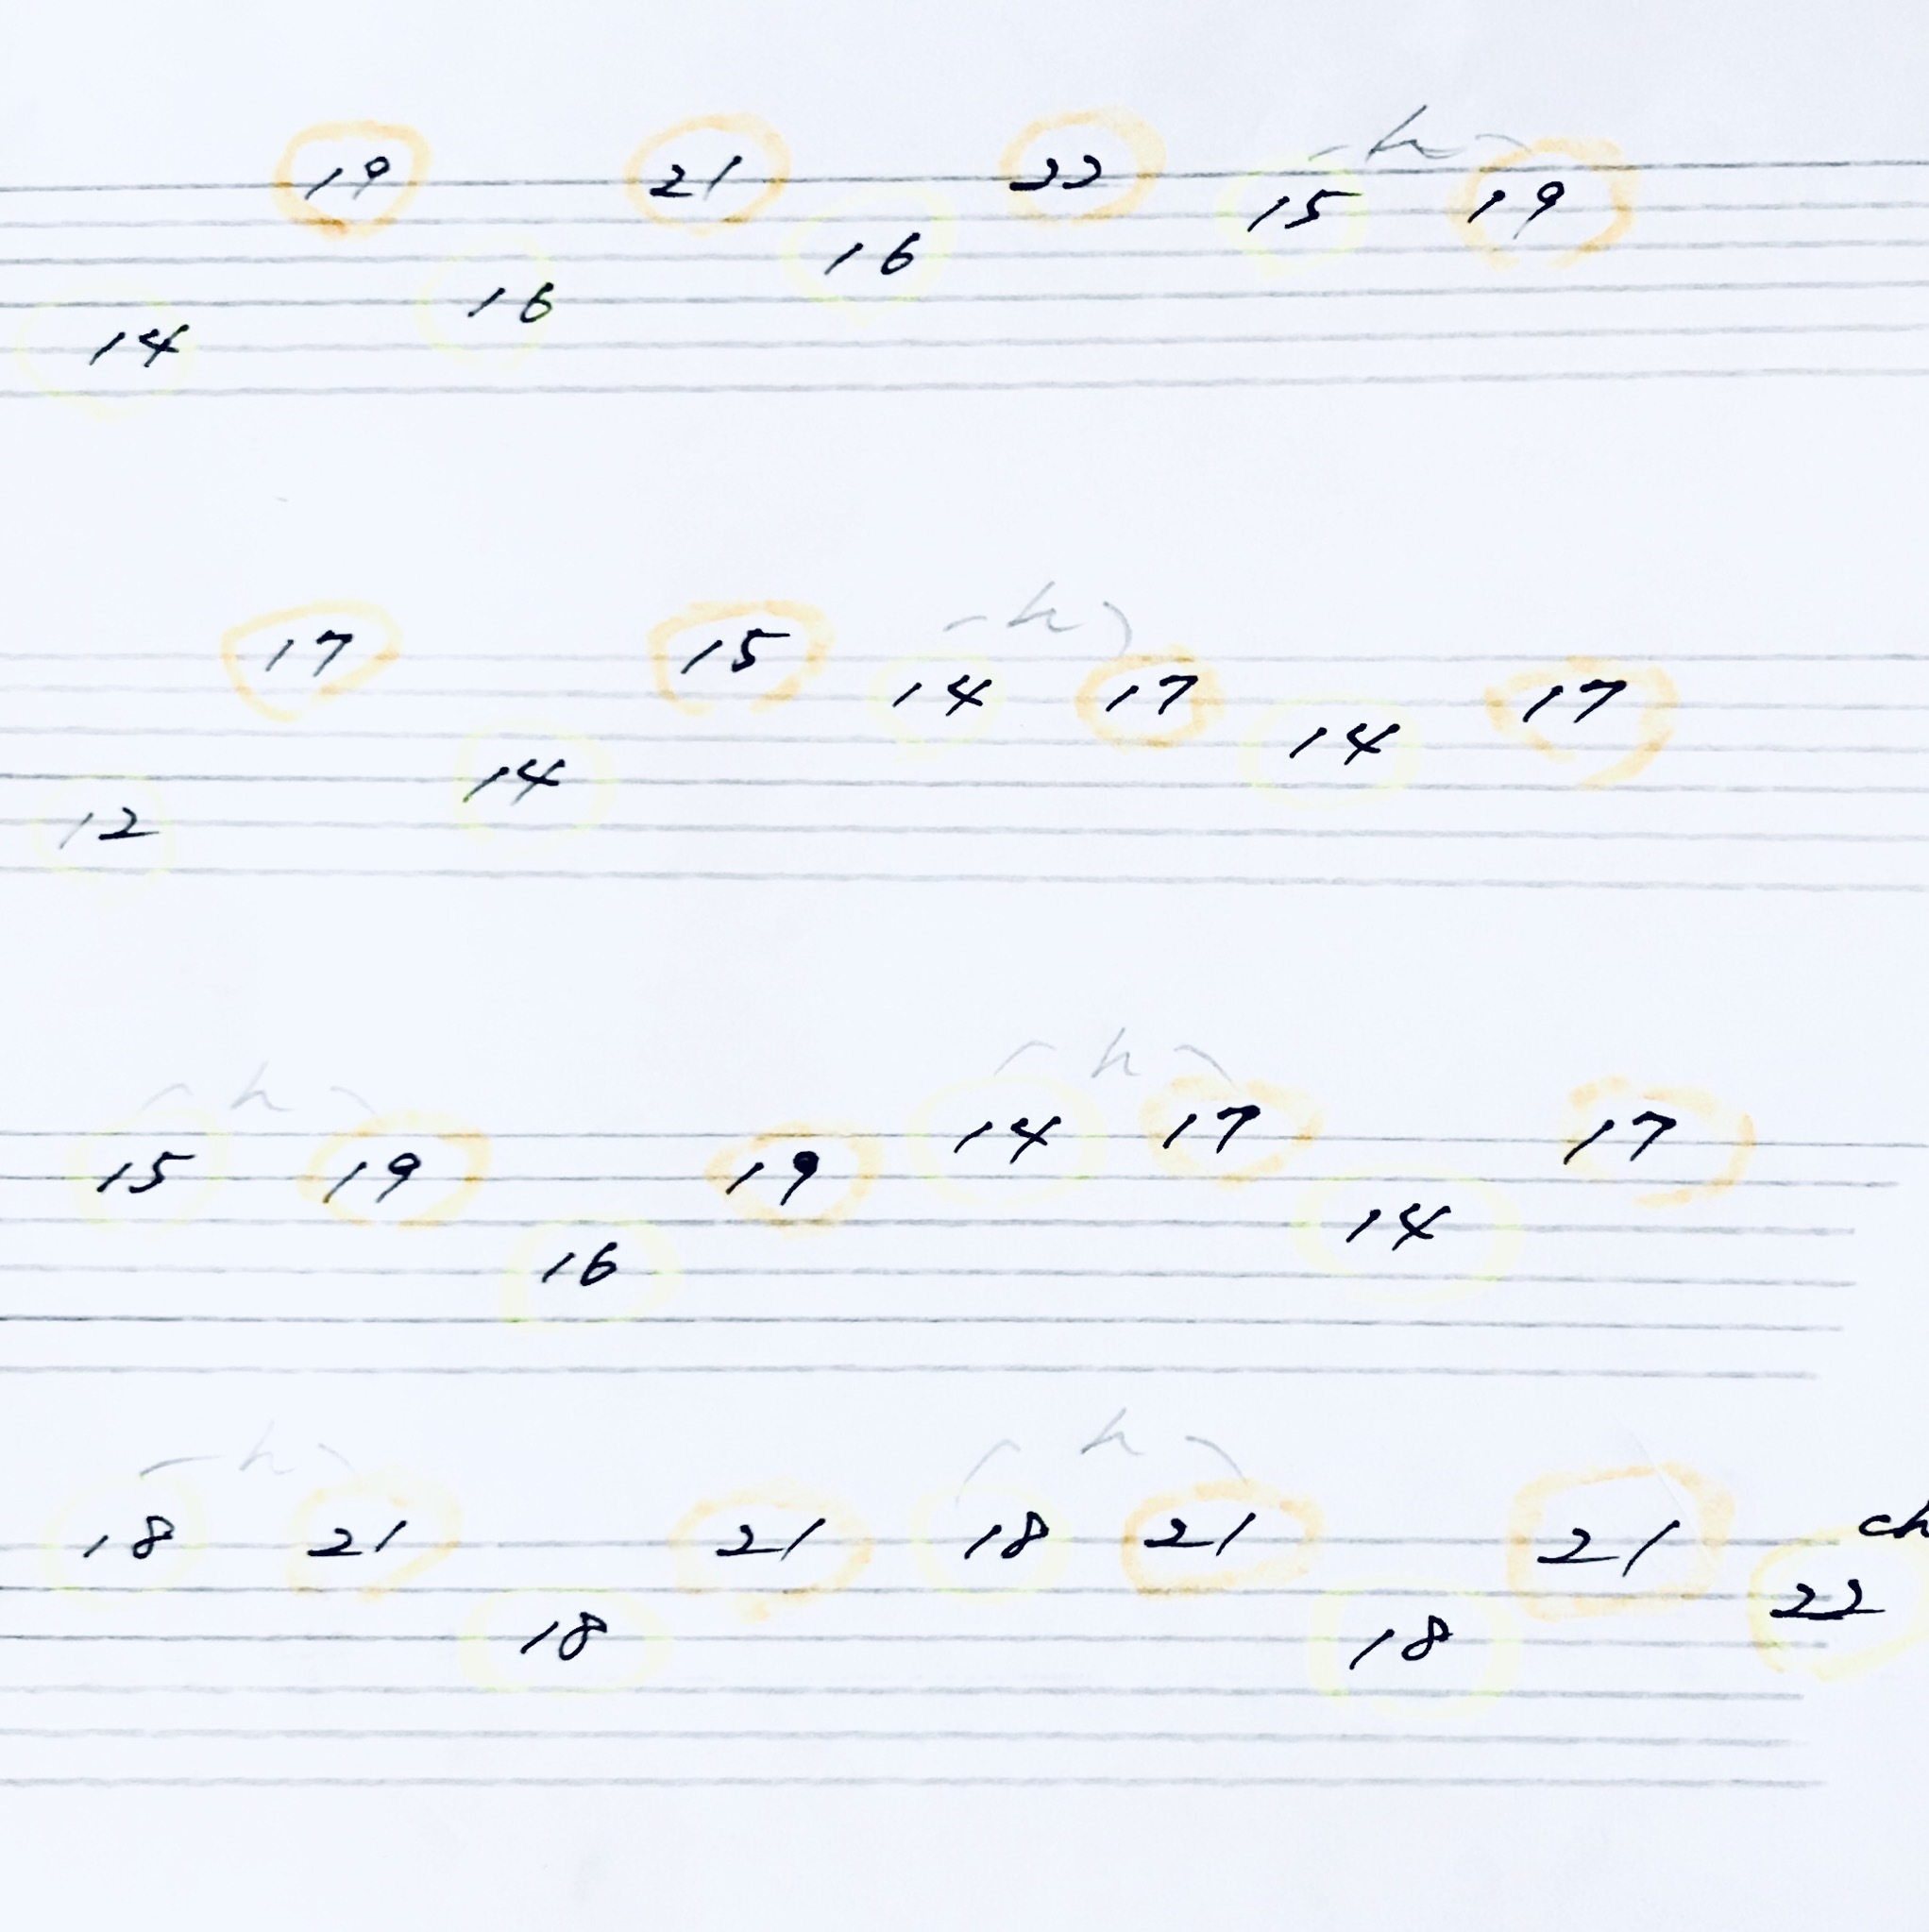 14 19 16 21 16 22 15 h 19
12 17 14 15 14 h 17 14 17
15 h 19 16 19 14 h 17 14 17
18 h 21 18 21 18 h 21 18 21 22 ch